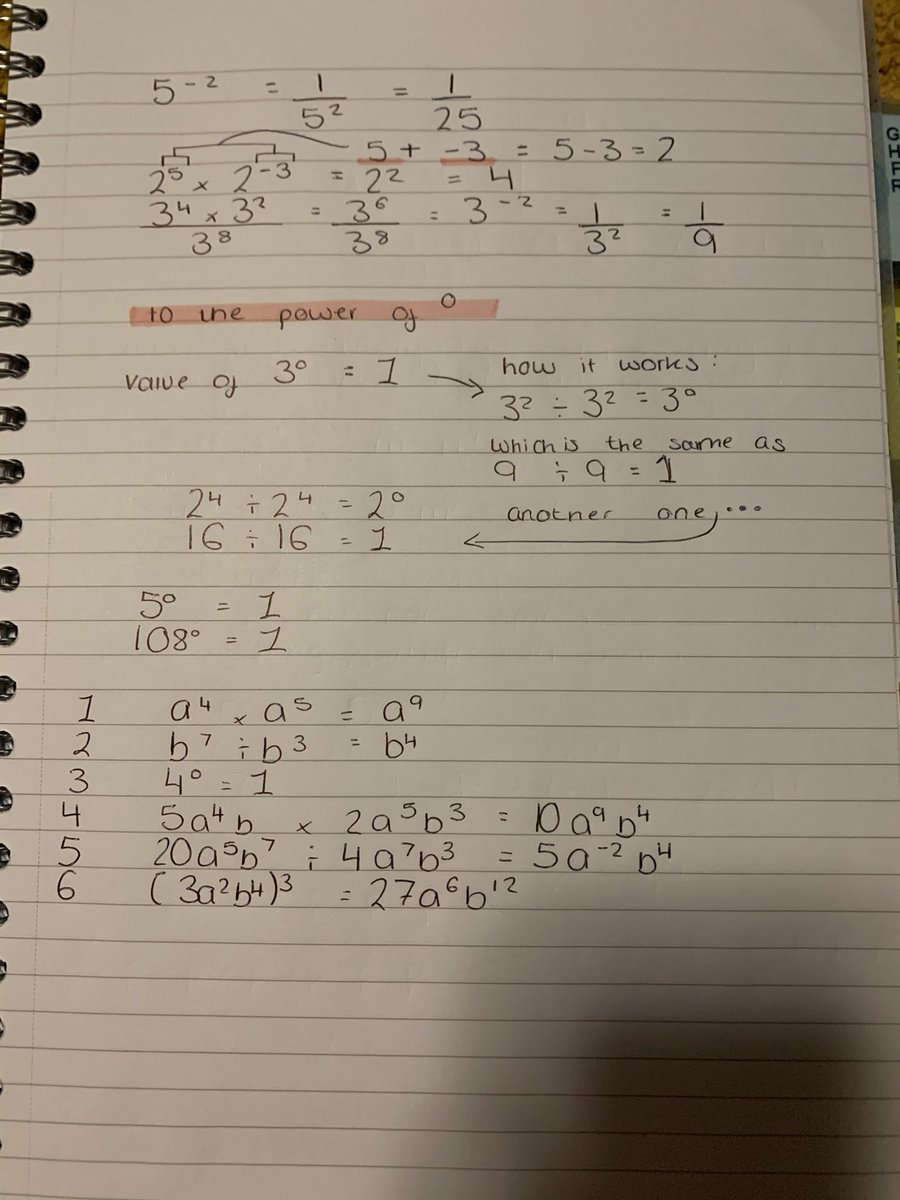 5⁻² = 1/5² = 1/25
5 + -3 = 5 - 3 = 2
2⁵ × 2⁻³ = 2² = 4
3⁴ × 3²/3⁸ = 3⁶/3⁸ = 3⁻² = 1/3² = 1/9
to the power of 0
value of 3⁰ = 1 → how it works:
3² ÷ 3² = 3⁰
which is the same as
9 ÷ 9 = 1
another one,...
2⁴ ÷ 2⁴ = 2⁰
16 ÷ 16 = 1
5⁰ = 1
108⁰ = 1
1 a⁴ × a⁵ = a⁹
2 b⁷ ÷ b³ = b⁴
3 4⁰ = 1
4 5a⁴b × 2a⁵b³ = 10a⁹b⁴
5 20a⁵b⁷ ÷ 4a⁷b³ = 5a⁻²b⁴
6 (3a²b⁴)³ = 27a⁶b¹²